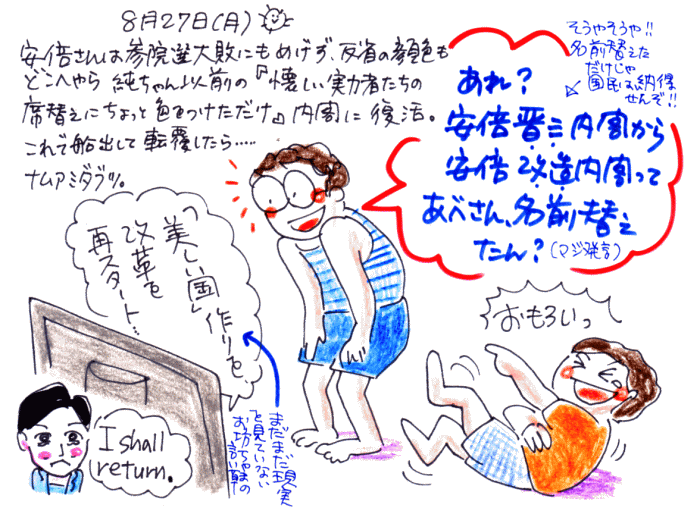 8月27日(月)
安倍さんは参院選大敗にもめげず、反省の顔色も
どこへやら 純ちゃん以前の『懐しい実力者たちの
席替えにちょっと色をつけただけ』内閣に復活。
これで船出して転覆したら……
ナムアミダブツ。
そうやそうや!!
名前替えた
だけじゃ
国民は納得
せんぞ!!
あれ?
安倍晋三内閣から
安倍改造内閣って
あべさん、名前替え
たん?(マジ発言)
「美しい国」作りを、
改革を
再スタート…
まだまだ現実
を見ていない
お坊ちゃまの
言い草
おもろいっ
I shall
return.